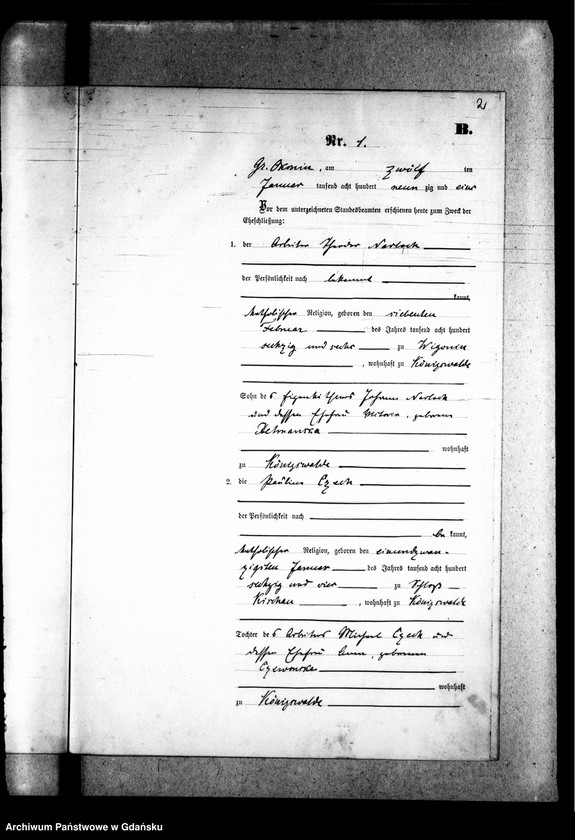 2
B.
Nr. 1.
Gr. Okonin, am zwölf ten
Januar tausend acht hundert neun zig und eins
Vor dem unterzeichneten Standesbeamten erschienen heute zum Zweck der
Eheschließung:
1. der Arbeiter Theodor Narloch
der Persönlichkeit nach bekannt
kannt,
katholischer Religion, geboren den siebenten
Februar des Jahres tausend acht hundert
sechzig und sechs zu Wigonin
, wohnhaft zu Königswalde
Sohn des Eigenthümers Johann Narloch
und dessen Ehefrau geborene
wohnhaft
zu Königswalde
2. die Pauline Czech
der Persönlichkeit nach
be kannt,
katholischer Religion, geboren den einundzwan-
zigsten Januar des Jahres tausend acht hundert
sechzig und vier zu Schloß
Kischau , wohnhaft zu Königswalde
Tochter des Arbeiters Michael Czech und
dessen Ehefrau Anna, geborenen
wohnhaft
zu Königswalde
Archiwum Państwowe w Gdańsku